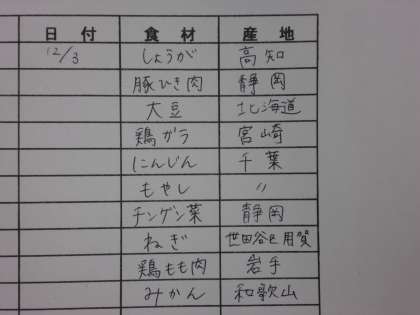 日付 食材 産地
12/3 しょうが 高知
豚ひき肉 静岡
大豆 北海道
鶏ガラ 宮崎
にんじん 千葉
もやし 〃
チンゲン菜 静岡
ねぎ 世田谷区用賀
鶏もも肉 岩手
みかん 和歌山